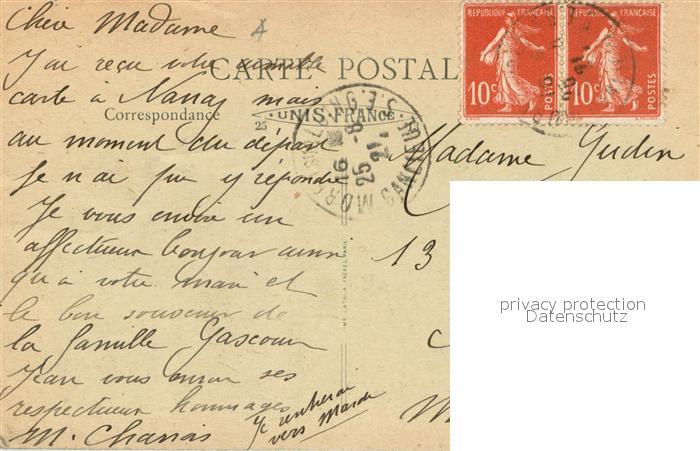 Chère Madame
J'ai reçu votre aimable
CARTE POSTALE
carte à Nancy mais
Correspondance
25 UNIS FRANCE
au moment du départ
Je n'ai pu y répondre
Je vous envoie un
affectueux bonjour ainsi
qu'à votre mari et
le bon souvenir de
la famille Gascoin
Jean vous envoie ses
respectueux hommages
Je rentrerai
vers Mardi
REPUBLIQUE FRANÇAISE
10c POSTES
REPUBLIQUE FRANÇAISE
10c POSTES
Madame
13
privacy protection
Datenschutz